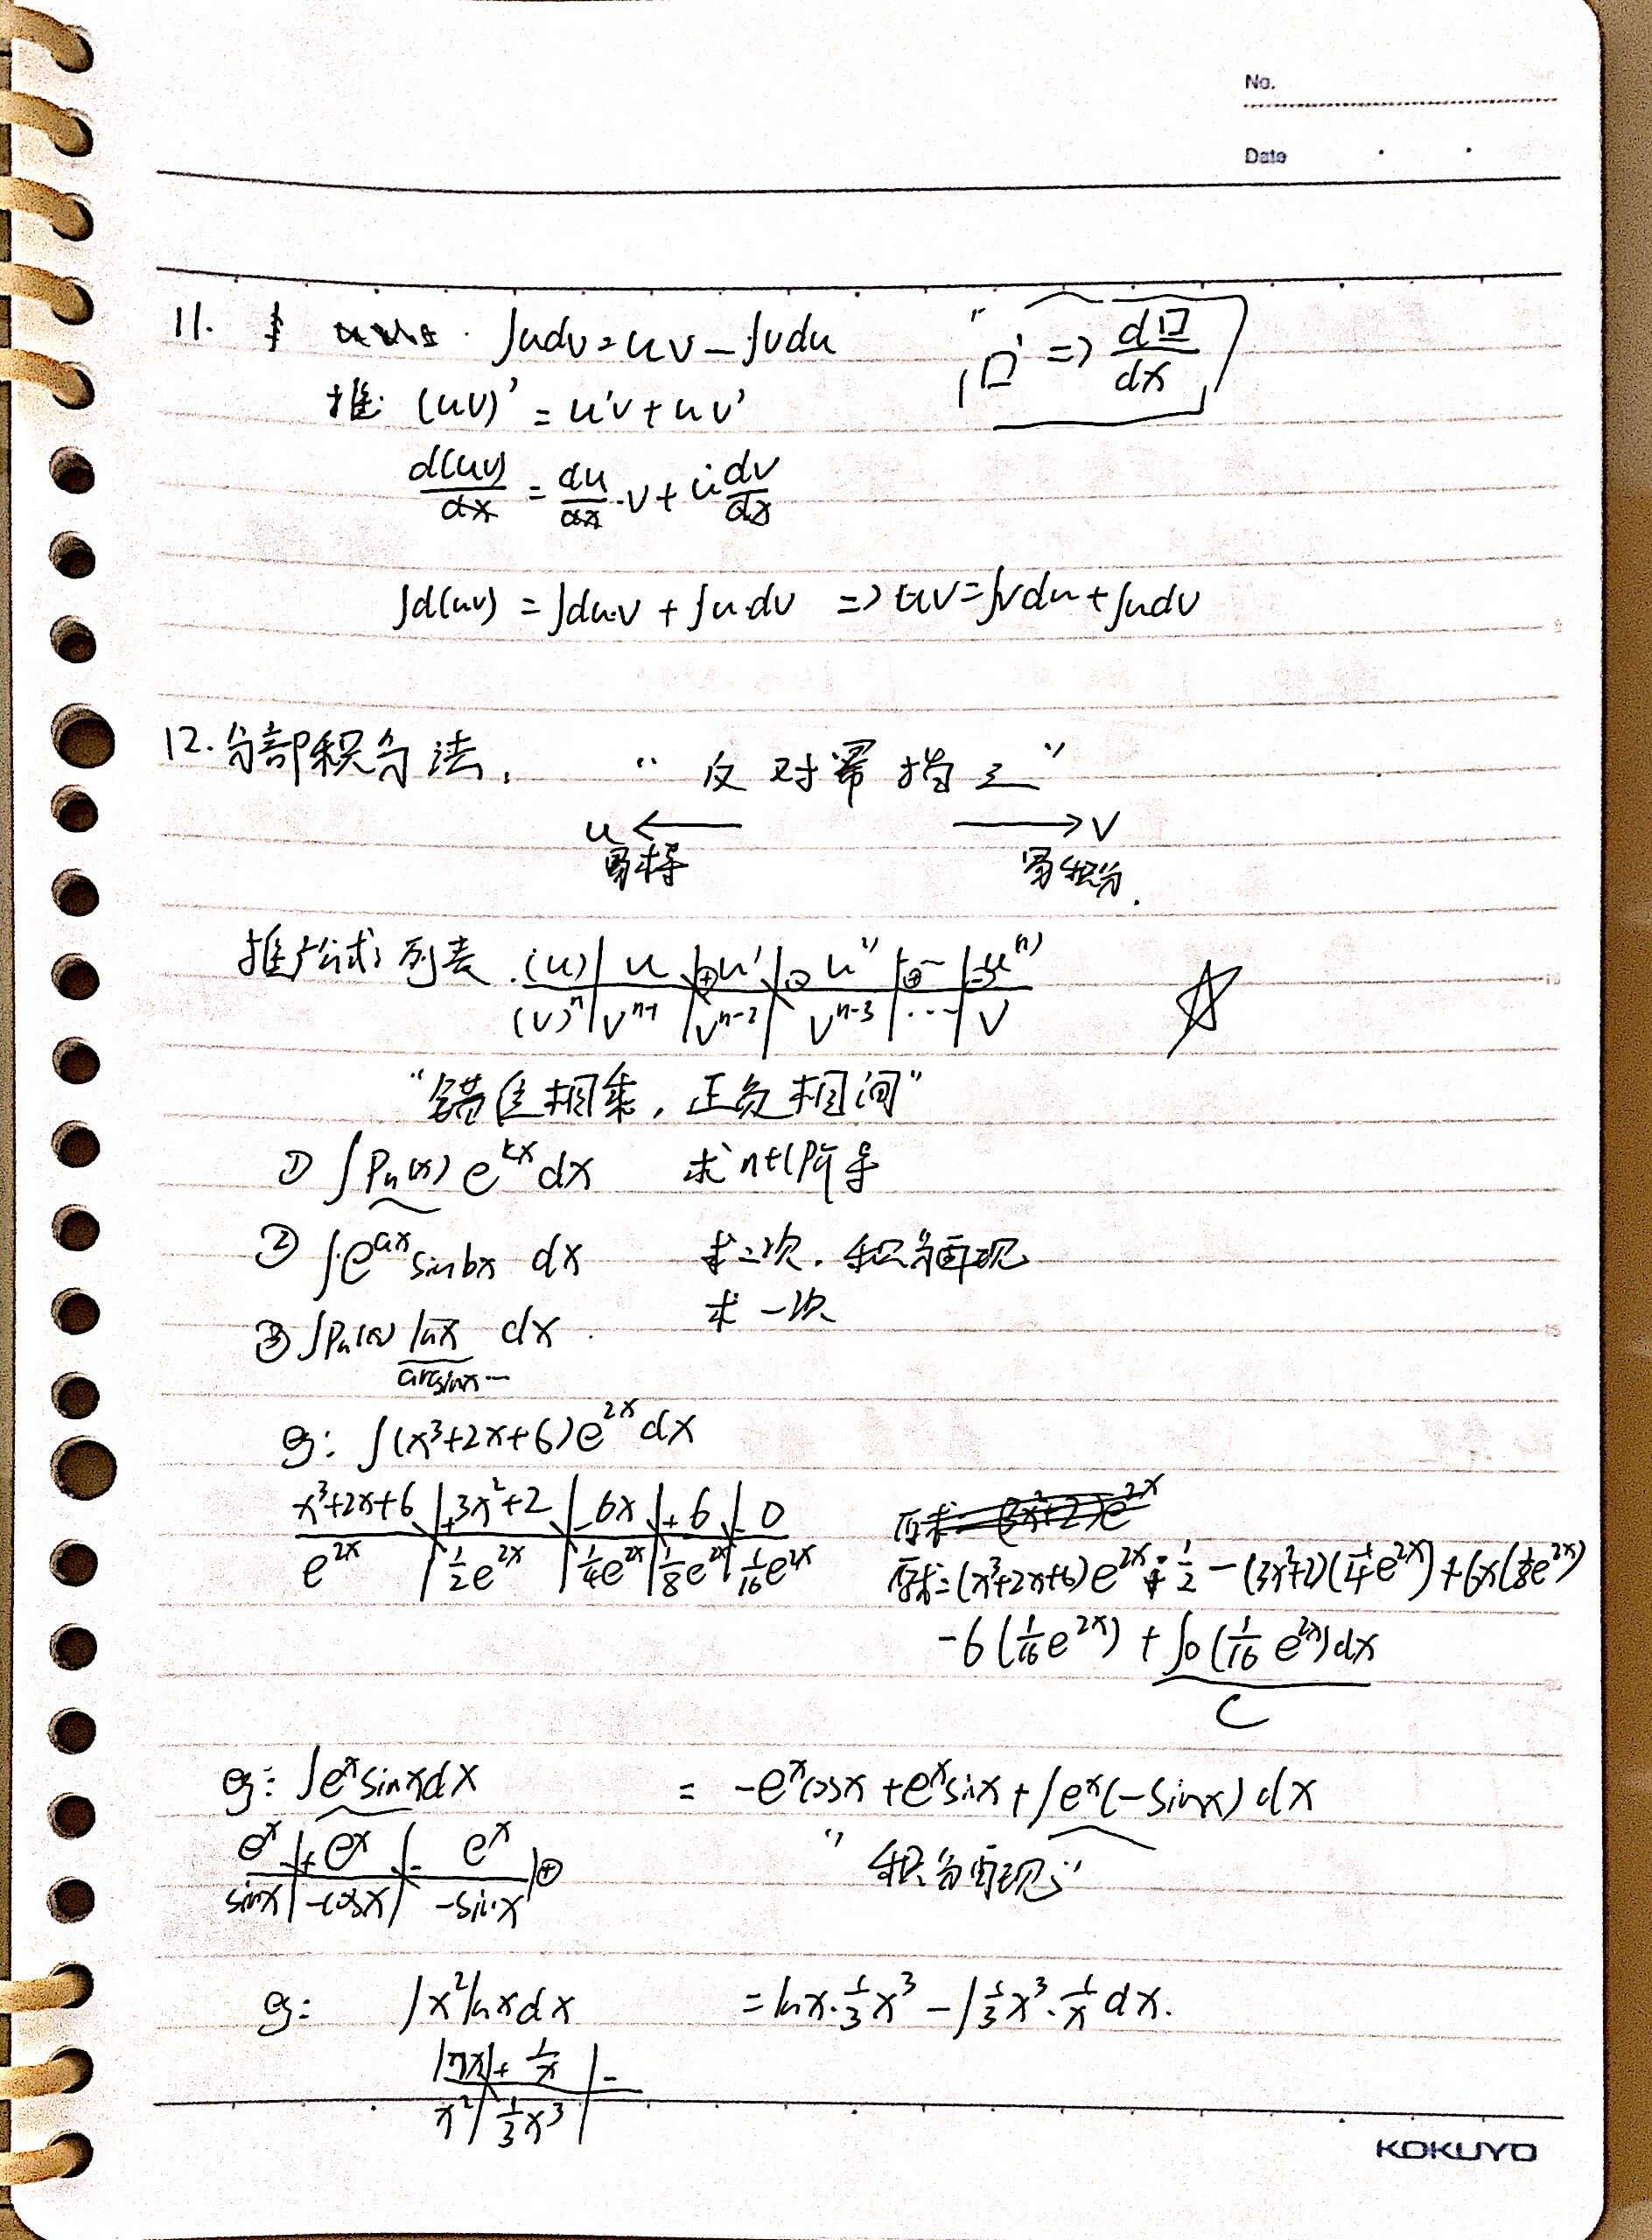 No.
Date
11. ∫udv=uv-∫vdu
"□' => d□/dx"
推: (uv)' = u'v+uv'
d(uv)/dx = du/dx·v+u dv/dx
∫d(uv) = ∫du·v + ∫u·dv => uv=∫vdu+∫udv
12.分部积分法, "反对幂指三"
u ← → v
易求导 易积分.
推广公式: 列表. (u) | u | ⊕u' | ⊖ u'' | ⊕… | u⁽ⁿ⁾
(v)ⁿ | vⁿ⁻¹ | vⁿ⁻² | vⁿ⁻³ | … | v
"错位相乘, 正负相间"
① ∫Pn(x) e^{kx} dx 求n+1阶导
② ∫e^{ax} sinbx dx 求二次. 积分再现
③ ∫Pn(x) lnx dx. 求一次
arcsinx…
eg: ∫(x³+2x+6)e^{2x}dx
x³+2x+6 | +3x²+2 | -6x | +6 | -0
e^{2x} | 1/2 e^{2x} | 1/4 e^{2x} | 1/8 e^{2x} | 1/16 e^{2x}
原求= (3x²+2)e^{2x}
原求=(x³+2x+6)e^{2x}·1/2-(3x²+2)(1/4 e^{2x})+6x(1/8 e^{2x})
-6(1/16 e^{2x}) + ∫0(1/16 e^{2x})dx
C
eg: ∫e^x sinxdx = -e^x cosx+e^x sinx+∫e^x(-sinx)dx
e^x | +e^x | - e^x | ⊕
sinx | -cosx | -sinx
"积分再现"
eg: ∫x²lnxdx =lnx·1/3x³-∫1/3x³·1/x dx.
lnx | + 1/x | -
x² | 1/3x³ |
KOKUYO